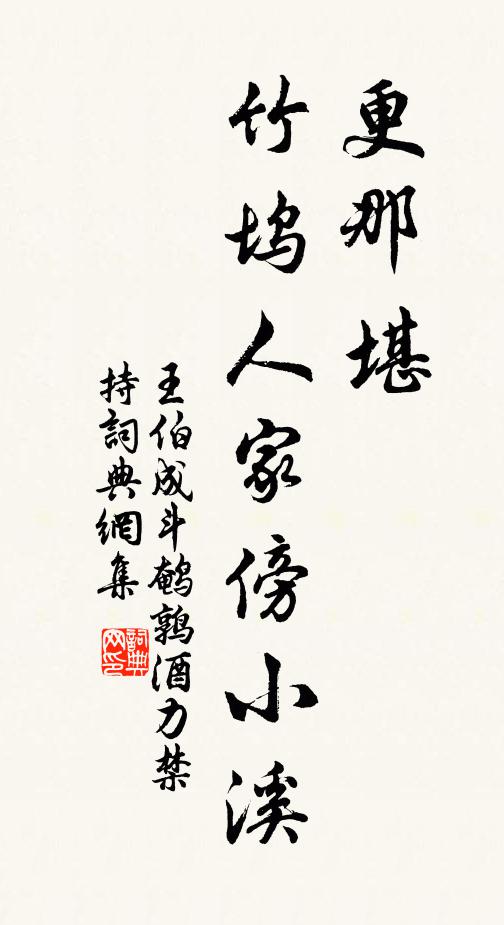 更那堪
竹坞人家傍小溪
王伯成斗鹌鹑酒力禁
持詞典網集
詞典
网印